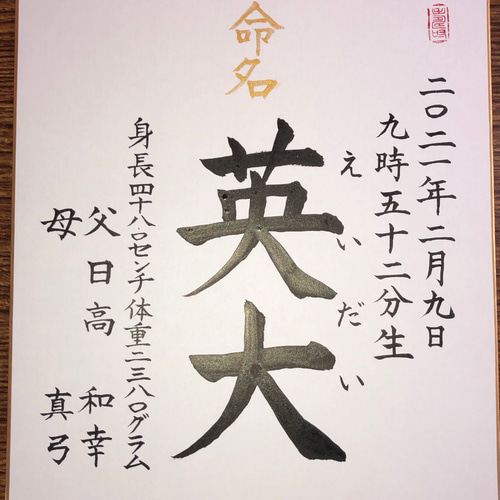 命名
二〇二一年二月九日
九時五十二分生
えいだい
英大
身長四十八.〇センチ体重二三八〇グラム
父日高 和幸
母 真弓